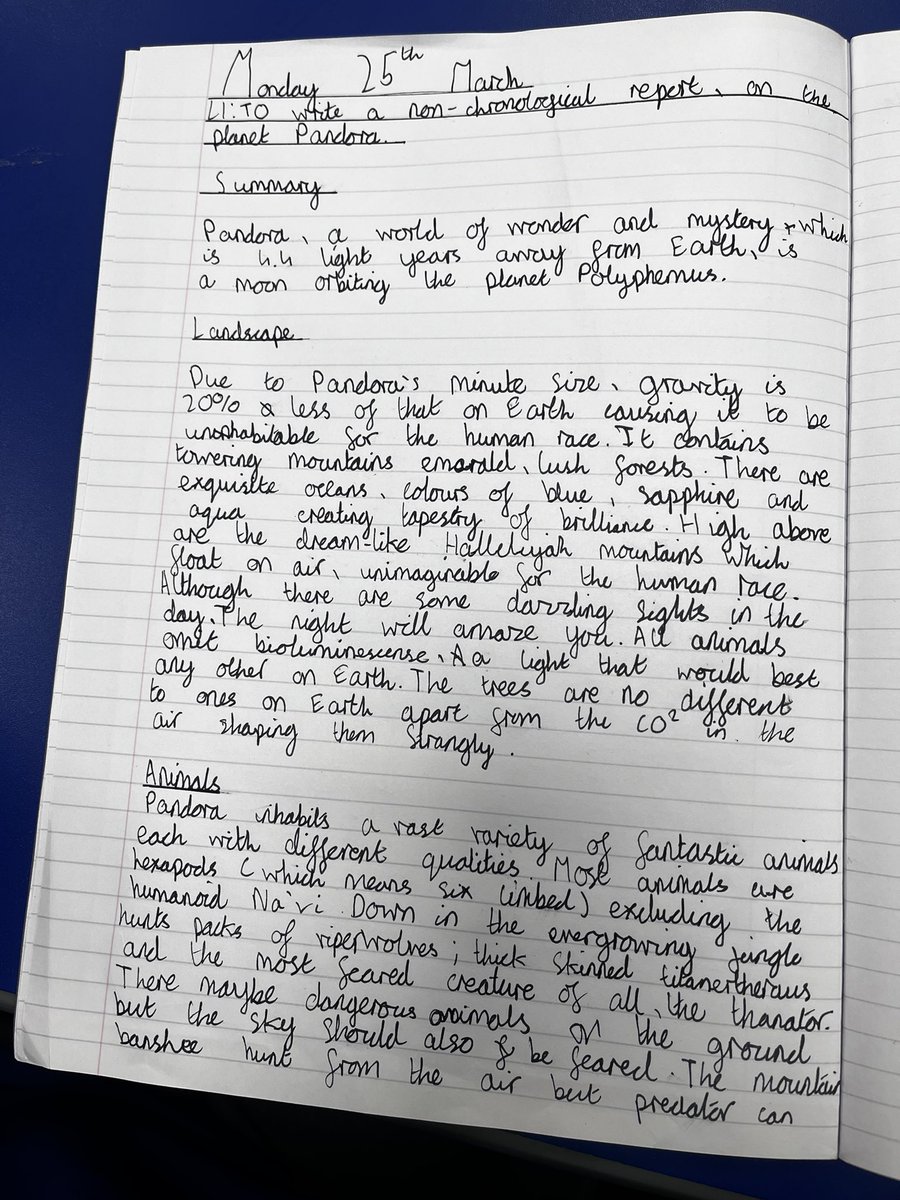 Monday 25th March
LI: TO write a non-chronological report, on the
planet Pandora.
Summary
Pandora, a world of wonder and mystery which
is 4.4 light years away from Earth, is
a moon orbiting the planet Polyphemus.
Landscape
Due to Pandora's minute size, gravity is
20% less of that on Earth causing it to be
unonhabitable for the human race. It contains
towering mountains emerald, lush forests. There are
exquisite oceans, colours of blue, sapphire and
aqua creating tapestry of brilliance. High above
are the dream-like Hallelujah mountains which
float on air, unimaginable for the human race.
Although there are some dazzling sights in the
day. The night will amaze you. All animals
omit bioluminescense, A a light that would best
any other on Earth. The trees are no different
to ones on Earth apart from the CO² in the
air shaping them strangly.
Animals
Pandora inhabits a vast variety of fantastic animals
each with different qualities. Most animals are
hexapods (which means six limbed) excluding the
humanoid Na'vi. Down in the evergrowing jungle
hunts packs of viperwolves; thick skinned titanertheraus
and the most feared creature of all, the thanator.
There maybe dangerous animals on the ground
but the sky should also be feared. The mountain
banshee hunt from the air but predator can